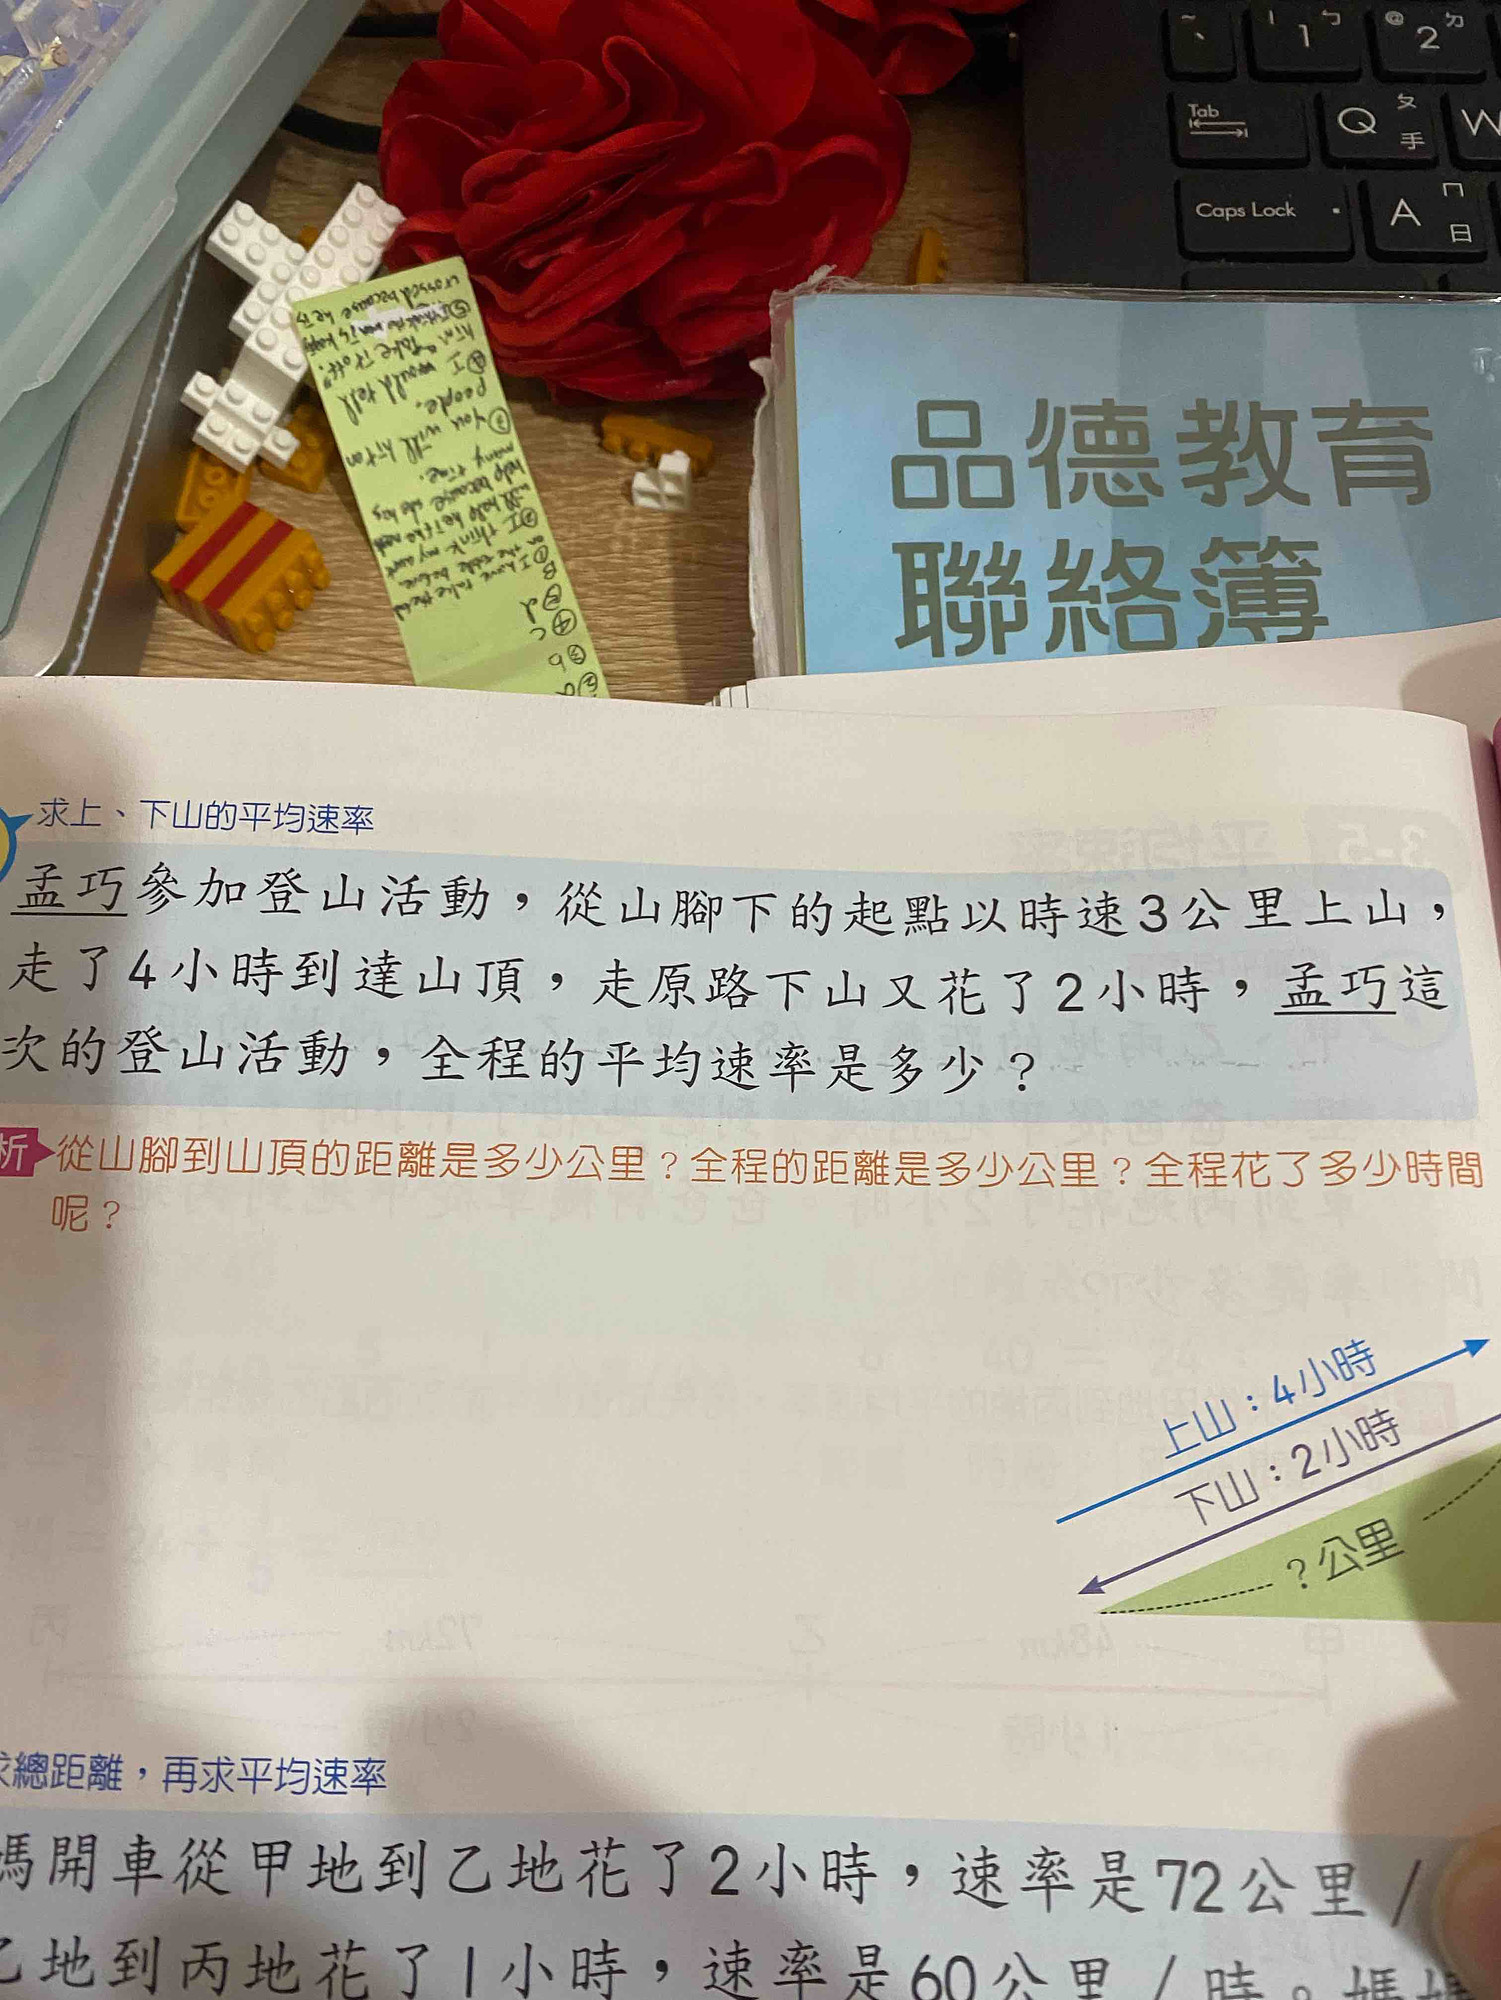 ~
1 ㄅ
@ 2 ㄉ
Tab
Q ㄆ 手
W
Caps Lock
A ㄇ 日
品德教育
聯絡簿
crossed because he is
him "Take it off."
④ I would tell
people.
③ you will hit on
many time.
help because he has
② I think my aunt
on the table before
① I have take the bal
B
⑤ d
④ c
③ b
②
求上、下山的平均速率
孟巧參加登山活動，從山腳下的起點以時速3公里上山，
走了4小時到達山頂，走原路下山又花了2小時，孟巧這
次的登山活動，全程的平均速率是多少？
析 從山腳到山頂的距離是多少公里？全程的距離是多少公里？全程花了多少時間
呢？
上山：4小時
下山：2小時
？公里
求總距離，再求平均速率
媽開車從甲地到乙地花了2小時，速率是72公里／
乙地到丙地花了1小時，速率是60公里／時。媽媽